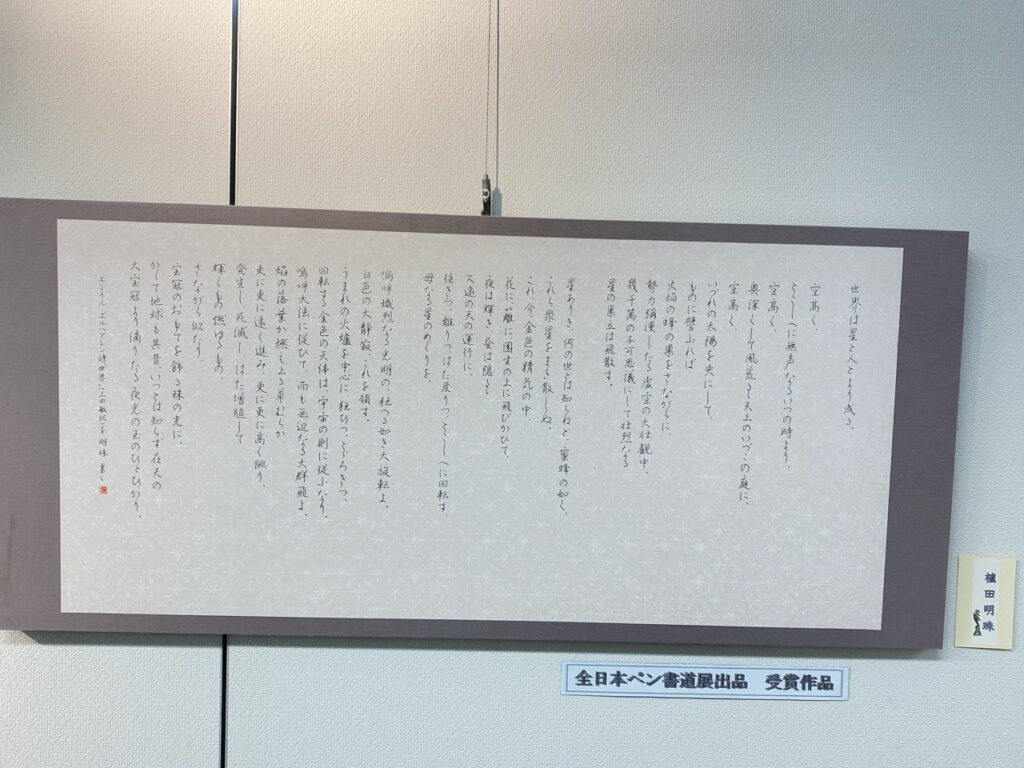 世界は星と人とより成る。
空高く、
とこしへに無声ながらいつの時より、
空高く、
奥深くして風荒き天上のいづこの庭に、
空高く、
いづれの太陽を央にして、
ものに譬ふれば
火焔の蜂の巣をさながらに、
勢力彌漫したる虚空の大壮観中、
幾千萬の不可思議にして壮烈なる
星の巣立は飛散す。
星ありき、何の世とは知らねど、蜜蜂の如く、
これら衆星をまき散しね。
これ、今、金色の精気の中、
花に、籬に園生の上に飛びかひて、
夜は輝き、昼は隠る
久遠の天の運行に、
往きつ、離りつはた戻りつ、とこしへに回転す
母なる星のめぐりを。
嗚呼熾烈なる光明の、狂へる如き大旋転よ、
白色の大静寂、これを領す。
うまれの火爐を中心に、狂ひつ、とどろきつ、
回転する金色の天体は、宇宙の則に従ふなり。
嗚呼大法に従ひて、而も無辺なる大群飛よ、
焔の落葉か燃え上る草むらか、
更に更に遠く進み、更に更に高く跳り、
発生し、死滅し、はた増殖して
輝くもの燃ゆるもの、
さながら似たり、
宝冠のおもてを飾る珠の光に、
かくて地球も其昔、いつとは知らず在天の
大宝冠より滴りたる夜光の玉のひとひかり。
エミイル・エルハアレン詩世界・上田敏訳 明珠書く
植田明珠
全日本ペン書道展出品 受賞作品